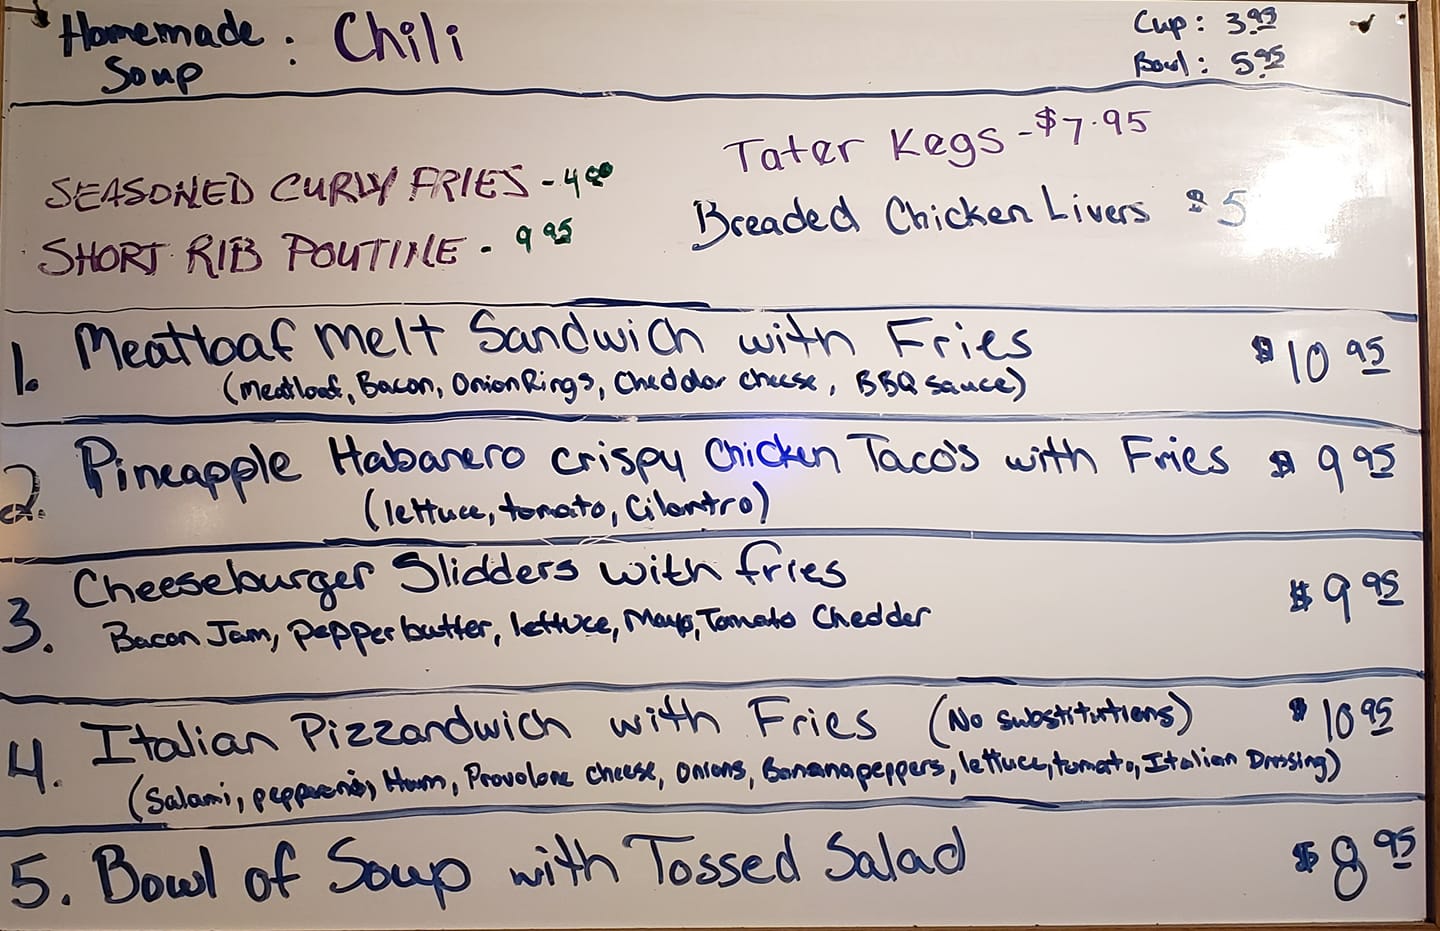 Homemade Soup : Chili
Cup: 3.95
Bowl: 5.95
SEASONED CURLY FRIES - 4.00
SHORT RIB POUTINE - 9.95
Tater Kegs - $7.95
Breaded Chicken Livers $5
1. Meatloaf Melt Sandwich with Fries $10.95
(Meatloaf, Bacon, Onion Rings, Cheddar cheese, BBQ sauce)
2. Pineapple Habanero crispy Chicken Taco's with Fries $9.95
(lettuce, tomato, Cilantro)
3. Cheeseburger Slidders with fries $9.95
Bacon Jam, Pepper butter, lettuce, Mayo, Tomato Chedder
4. Italian Pizzandwich with Fries (No substitutions) $10.95
(Salami, pepperoni, Ham, Provolone cheese, Onions, Banana peppers, lettuce, tomato, Italian Dressing)
5. Bowl of Soup with Tossed Salad $8.95